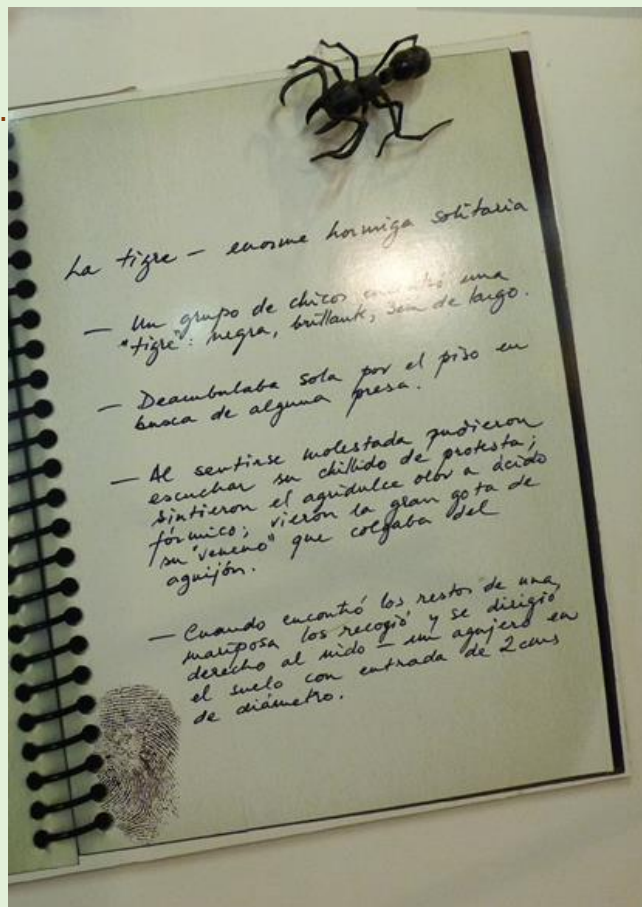 La tigre — enorme hormiga solitaria
— Un grupo de chicos encontró una
"tigre": negra, brillante, de largo.
— Deambulaba sola por el piso en
busca de alguna presa.
— Al sentirse molestada pudieron
escuchar su chillido de protesta;
sintieron el agridulce olor a ácido
fórmico; vieron la gran gota de
su "veneno" que colgaba del
aguijón.
— Cuando encontró los restos de una
mariposa los recogió y se dirigió
derecho al nido — un agujero en
el suelo con entrada de 2 cms
de diámetro.